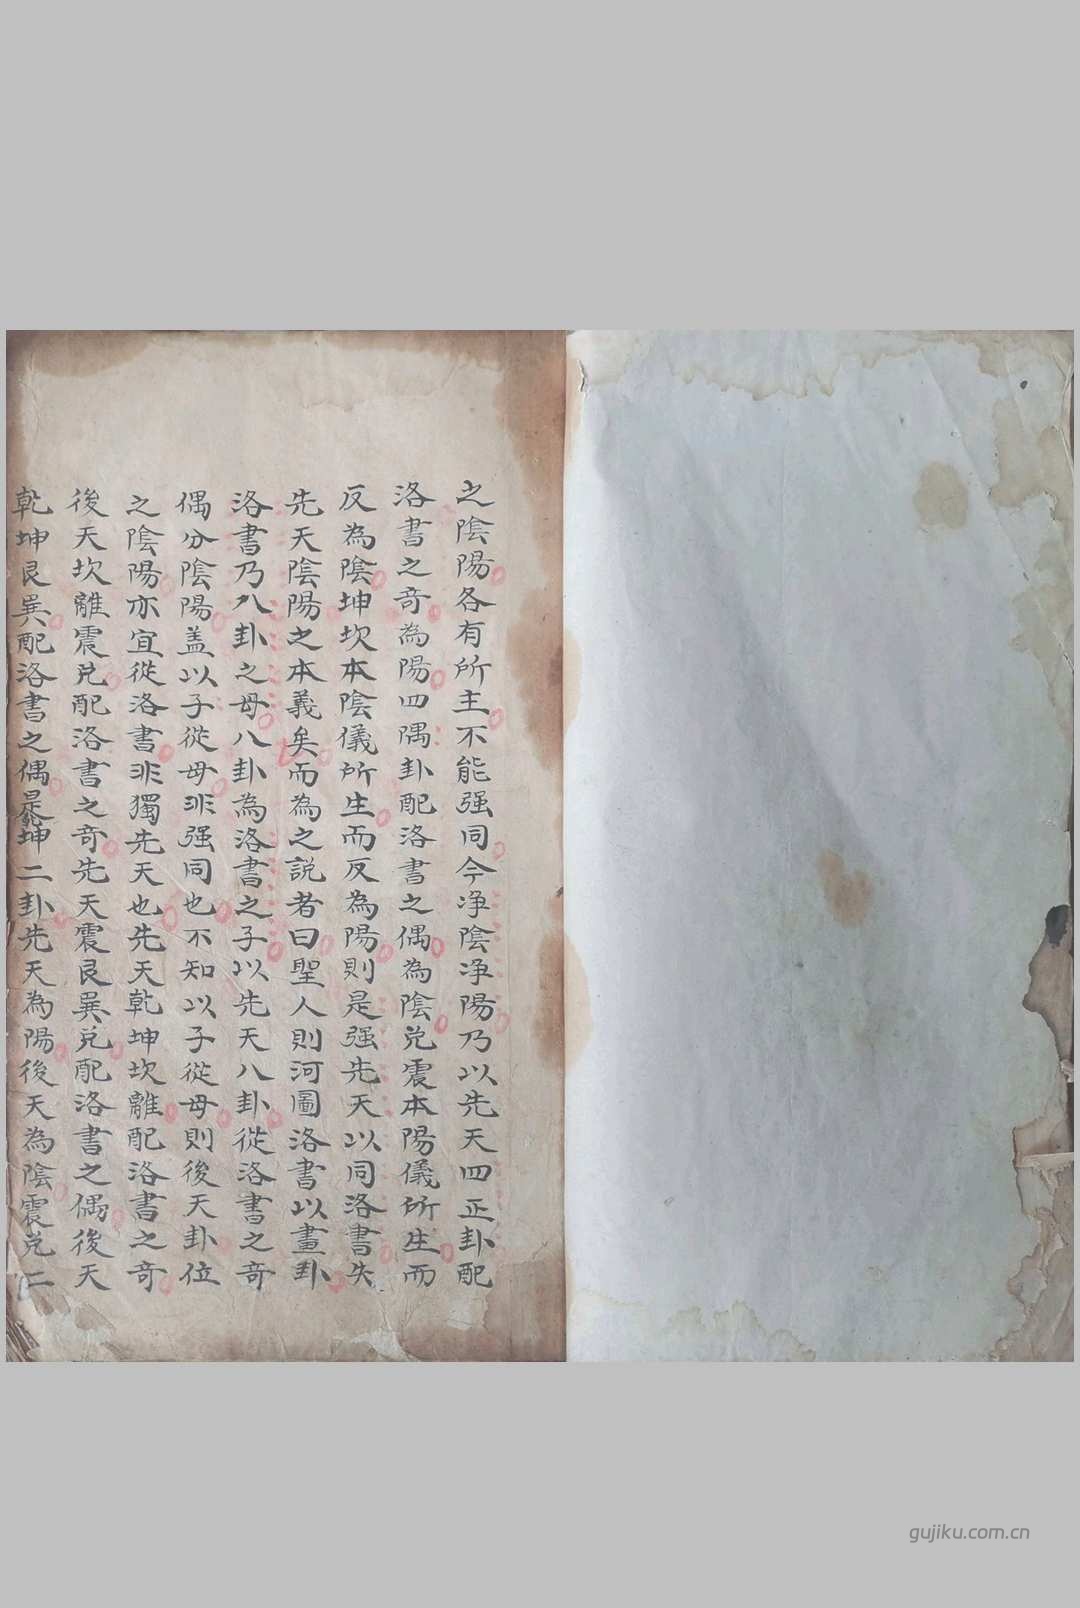 之陰陽各有所主不能强同今浄陰浄陽乃以先天四正卦配
洛書之竒為陽四隅卦配洛書之偶為陰兊震本陽儀所生而
反為陰坤坎本陰儀所生而反為陽則是强先天以同洛書失
先天陰陽之本義矣而為之説者曰聖人則河圖洛書以畫卦
洛書乃八卦之母八卦為洛書之子以先天八卦從洛書之竒
偶分陰陽盖以子從母非强同也不知以子從母則後天卦位
之陰陽亦宜從洛書非獨先天也先天乾坤坎離配洛書之竒
後天坎離震兊配洛書之竒先天震艮巽兊配洛書之偶後天
乾坤艮巽配洛書之偶是坤二卦先天為陽後天為陰震兊二
gujiku.com.cn